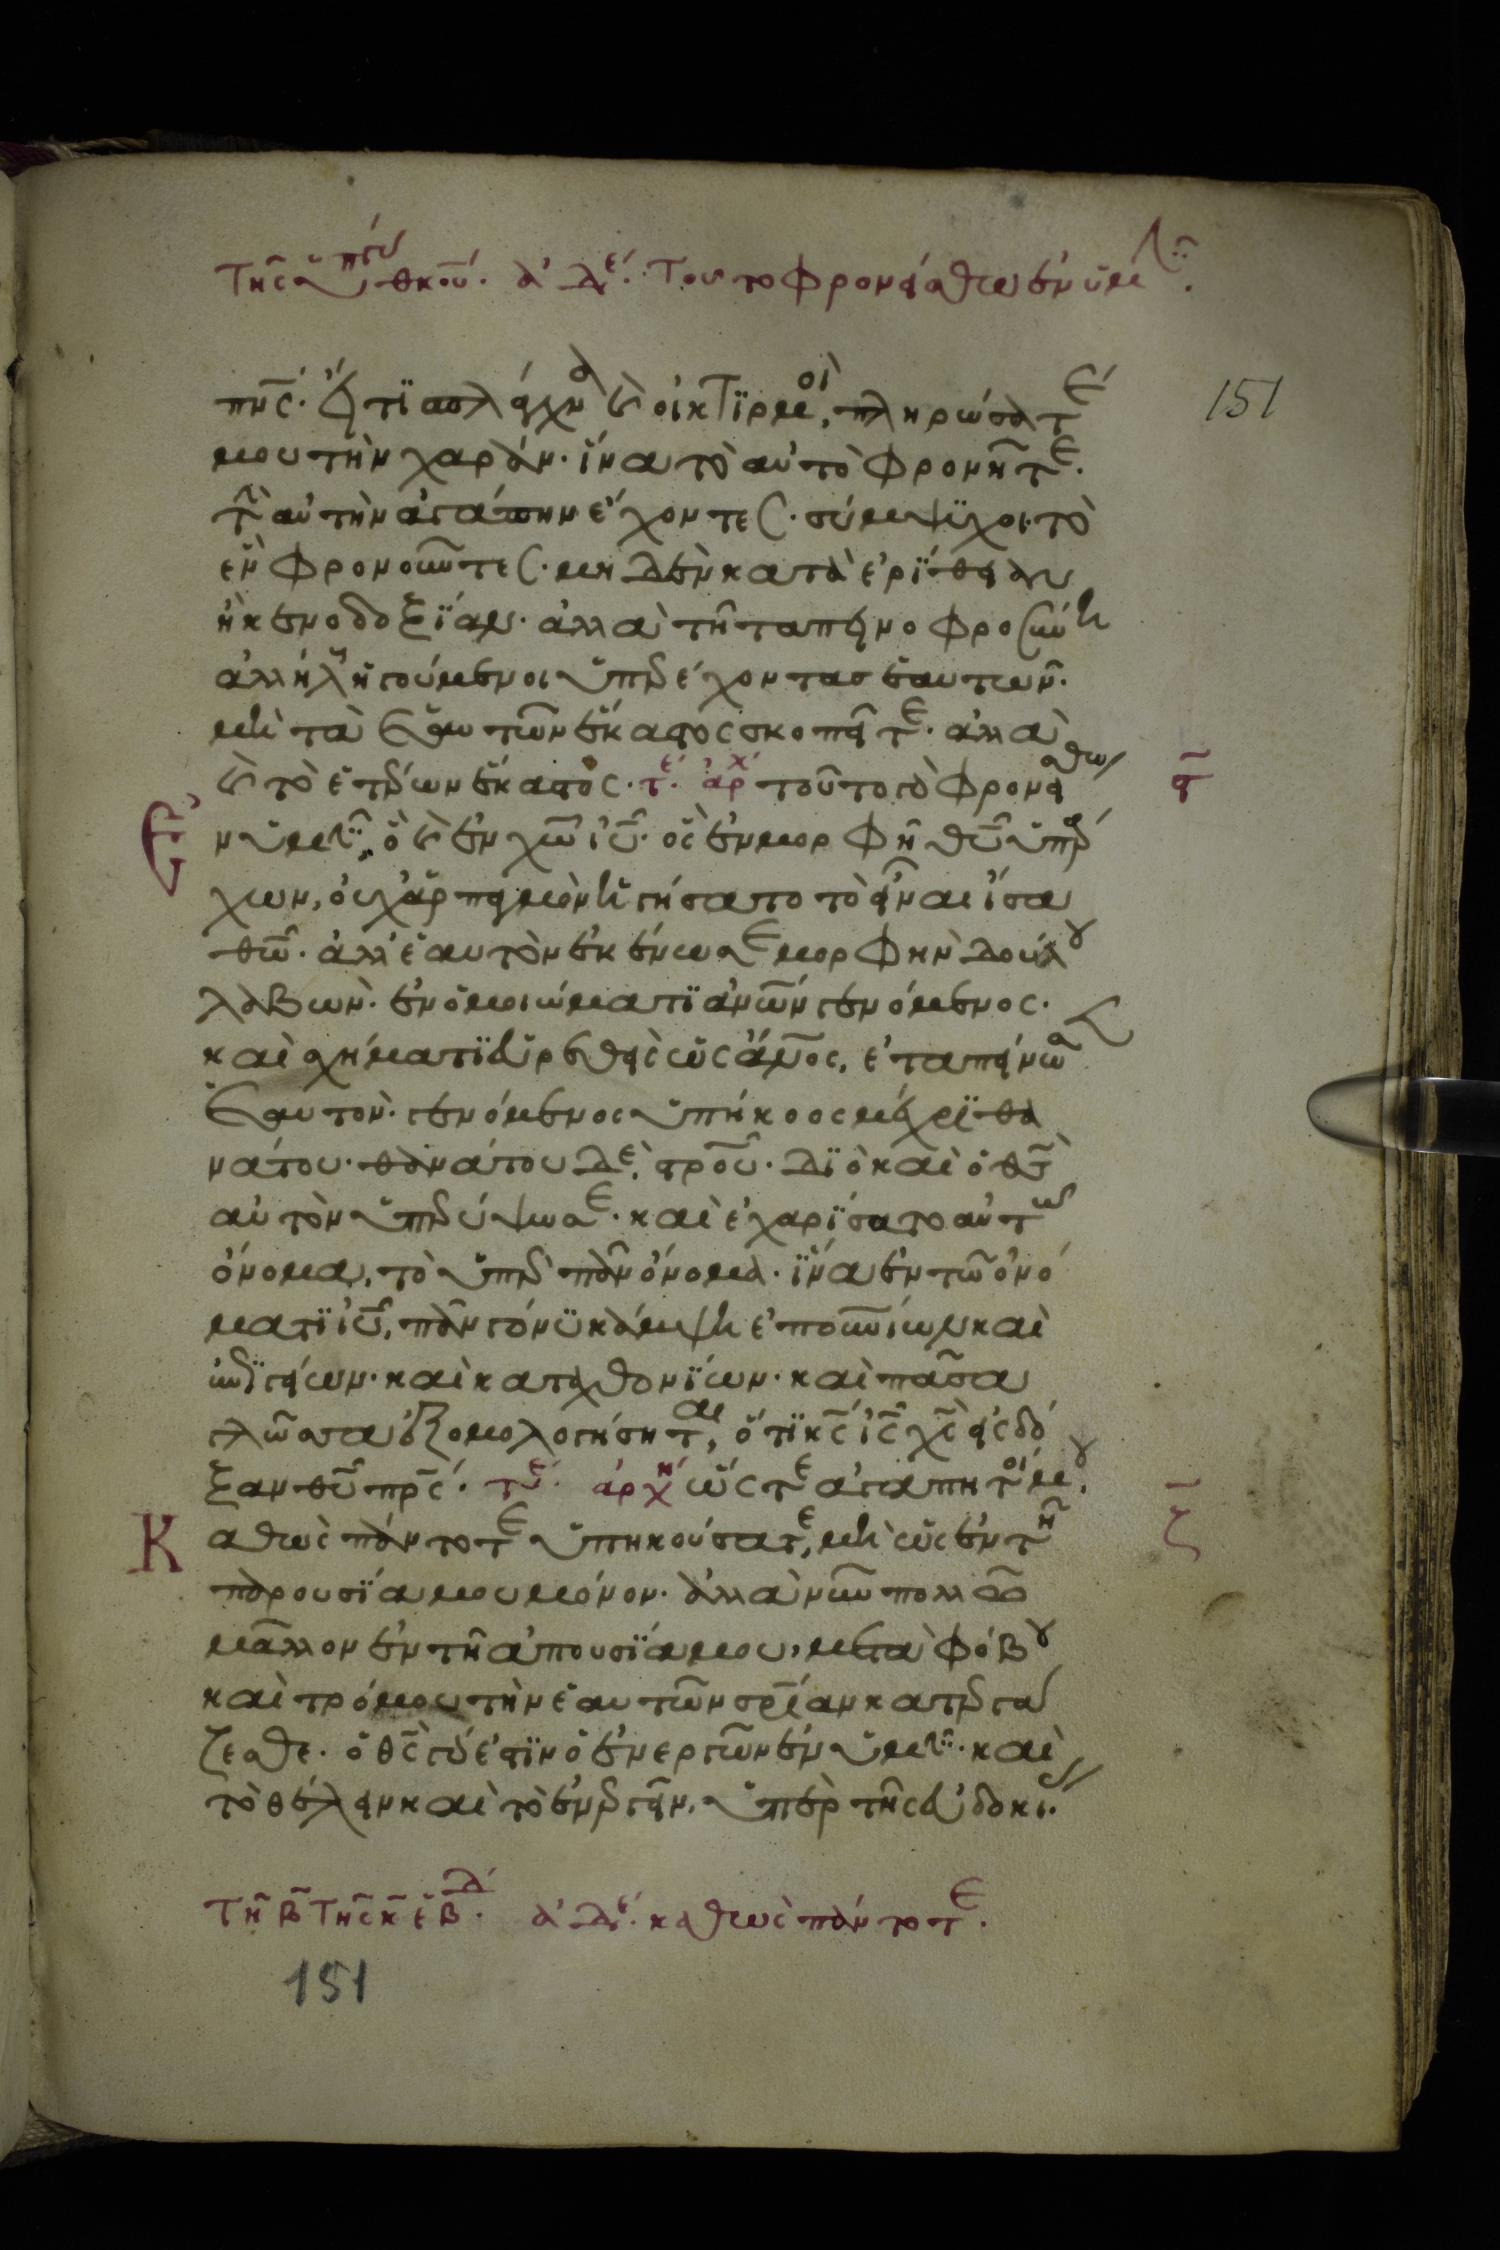 Τῆς ὑπ(ερα)γ(ίας) Θκου. ἀδελ. Τουτο φρονείσθω ἐν ὑμῖν.
151
πνς· εἴ τϊ σπλάγχνα καὶ οἰκτϊρμοὶ, πληρώσατέ
μου τὴν χαράν· ἵνα τὸ αὐτὸ φρονῆτε.
τὴν αὐτὴν ἀγάπην ἔχοντες· σύμψϋχοι· τὸ
ἓν φρονοῦντες· μηδὲν κατὰ ἐρϊθείαν
ἢ κενοδοξΐαν· ἀλλὰ τῇ ταπεινοφροσύνη
ἀλλήλους ἡγούμενοι ὑπερέχοντας ἑαυτῶν·
μὴ τὰ ἑαυτῶν ἕκαστος σκοπεῖτε· ἀλλὰ
καὶ τὸ ἑτέρων ἕκαστος· τε· ἀρχ τοῦτο γὸ φρονείσθω
ς
Ε ν ὑμῖν, ὃ καὶ ἐν χω ιυ· ὃς ἐν μορφῇ θυ ὑπάρ
χων, οὐχ ἁρπαγμὸν ἡγήσατο τὸ εἶναι ἴσα
θω· ἀλλ' ἑαυτὸν ἐκένωσε μορφὴν δούλου
λαβὼν· ἐν ὁμοιώματϊ ἀνων γενόμενος·
καὶ σχήματϊ εὑρεθεὶς ὡς ανος, ἐταπείνωσεν
ἑαυτον· γενόμενος ὑπήκοος μέχρϊ θα
νάτου· θανάτου δὲ, στρου· δϊὸ καὶ ὁ θς
αὐτὸν ὑπερύψωσε· καὶ ἐχαρΐσατο αὐτῶ
ὄνομα, τὸ ὑπὲρ πᾶν ὄνομα· ἵνα ἐν τῶ ὀνό
ματϊ ιυ, πᾶν γόνϋ κάμψη ἐπουνίων καὶ
ἐπϊγείων· καὶ καταχθονΐων· καὶ πᾶσα
γλῶσσα ἐξομολογήσηται, ὅτϊ κς ις χς εἰς δό
ξαν θυ πρς· τε· ἀρχη ὥστε ἀγαπητοί μου.
ζ
Κ αθὼς πάντοτε ὑπηκούσατε, μὴ ὡς ἐν τῆ
παρουσΐα μου μόνον· ἀλλὰ νῦν πολλῶ
μᾶλλον ἐν τῆ ἀπουσΐα μου, μετὰ φόβου
καὶ τρόμου τὴν ἑαυτῶν σρΐαν κατεργά
ζεσθε· ὁ θς γάρ ἐστϊν ὁ ἐνεργῶν ἐν ὑμῖν· καὶ
τὸ θέλειν καὶ τὸ ἐνεργεῖν, ὑπὲρ τῆς εὐδοκί·
Τῆ β τῆς κ εβδ. ἀδελ. καθὼς πάντοτε.
151